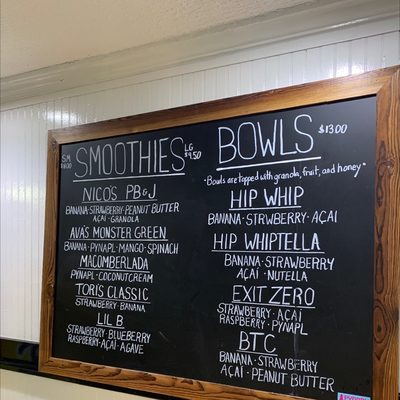 SMOOTHIES
SM
LG
$9.50
NICO'S PB&J
BANANA·STRAWBERRY·PEANUT BUTTER
AÇAI·GRANOLA
AVA'S MONSTER GREEN
BANANA·PYNAPL·MANGO·SPINACH
MACOMBERLADA
PYNAPL·COCONUT CREAM
TORI'S CLASSIC
STRAWBERRY·BANANA
LIL B
STRAWBERRY·BLUEBERRY
RASPBERRY·AÇAI·AGAVE
BOWLS $13.00
"Bowls are topped with granola, fruit, and honey"
HIP WHIP
BANANA·STRWBERRY·AÇAI
HIP WHIPTELLA
BANANA·STRAWBERRY
AÇAI·NUTELLA
EXIT ZERO
STRAWBERRY·AÇAI
RASPBERRY·PYNAPL
BTC
BANANA·STRAWBERRY
AÇAI·PEANUT BUTTER